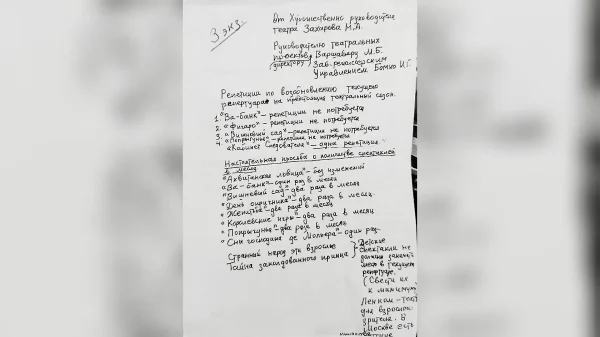 3 экз.
От Художественного руководителя
театра Захарова М.А.
Руководителю театральных
проектов Варшаверу М.Б.
директору
Зав. режиссерским
Управлением
Репетиции по возобновлению текущего
репертуара на предстоящий театральный сезон.
1. "Ва-банк" – репетиции не потребуется
2. "Фигаро" – репетиции не потребуется
3. "Вишневый сад" – репетиции не потребуется
4. "Попрыгунья" – репетиции не потребуется
"Кабинет следователя" – одна репетиция.
Настоятельная просьба о количестве спектаклей
в месяц
"Аквитанская львица" – без изменений
"Ва-банк" – один раз в месяц
"Вишневый сад" – два раза в месяц
"День опричника" – два раза в месяц
"Женитьба" – два раза в месяц
"Королевские игры" – два раза в месяц
"Попрыгунья" – два раза в месяц
"Сны господина де Мольера" – один раз
Странный народ эти взрослые
Тайна заколдованного принца
Детские
спектакли не
должны занимать
место в текущем
репертуаре
(Свести их
к минимуму)
Ленком – театр
для взрослого
зрителя. В
Москве есть